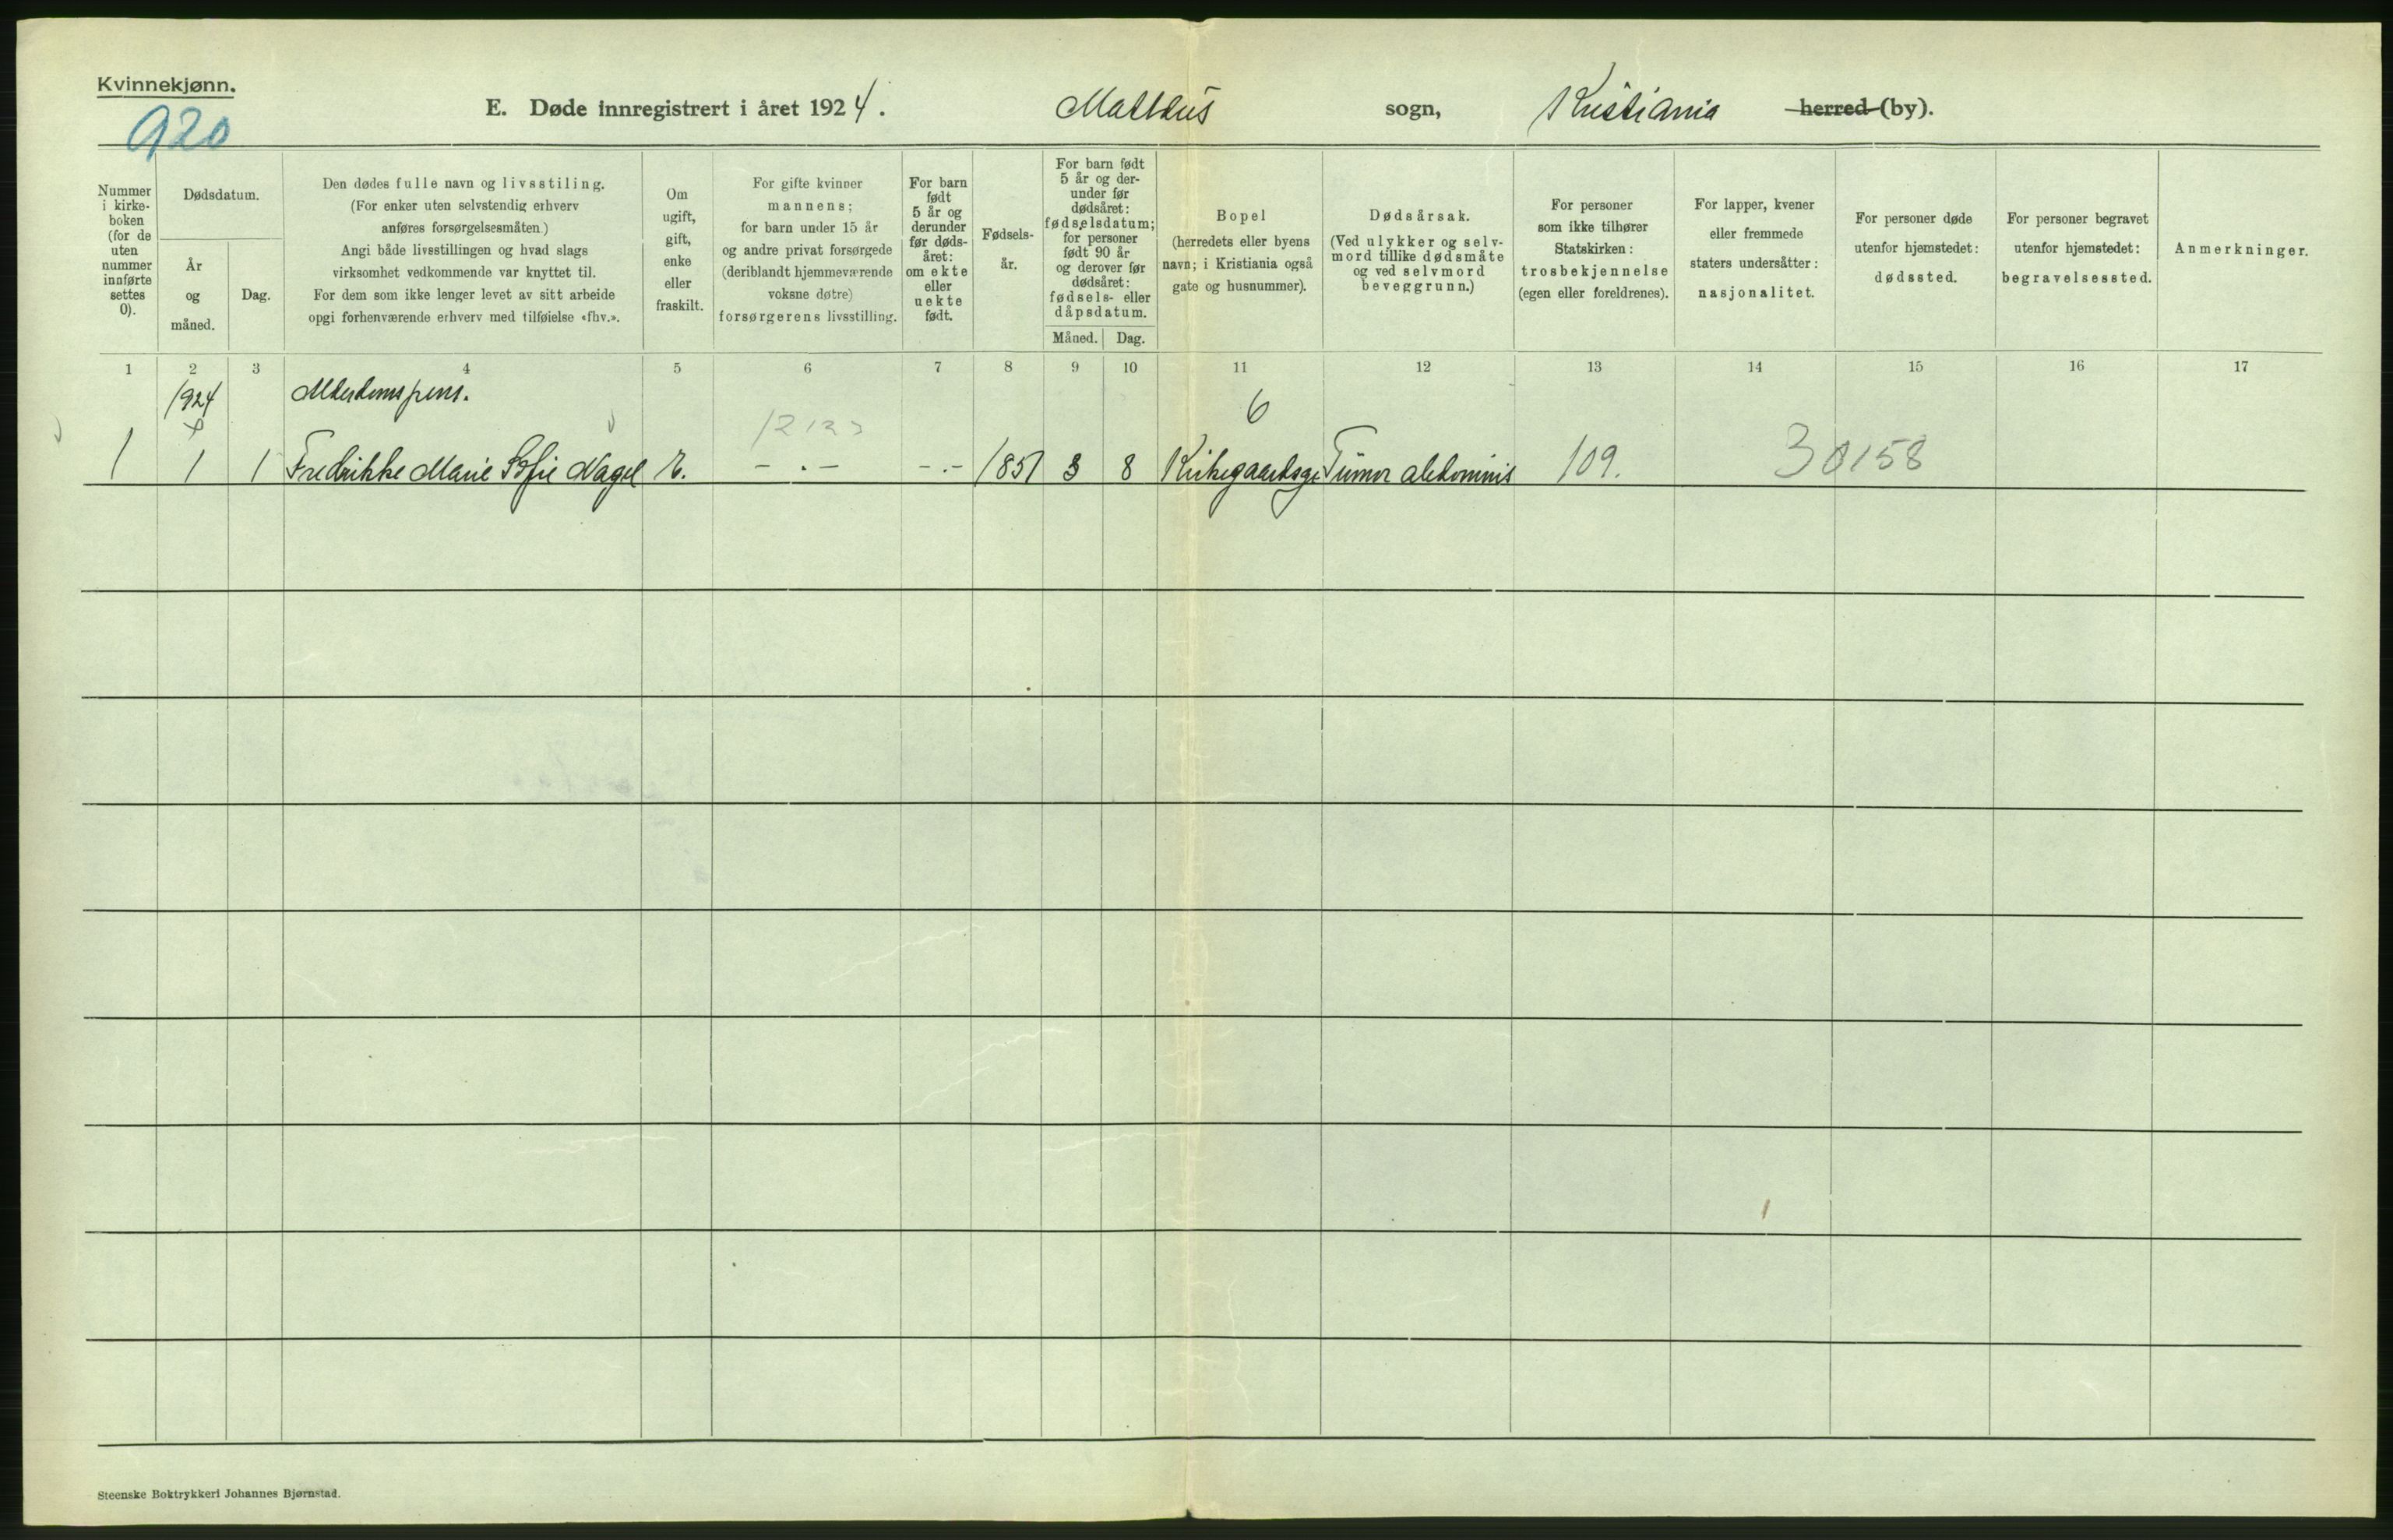 Kvinnekjønn.
920
E. Døde innregistrert i året 1924. Matteus sogn, Kristiania herred (by).
Nummer i kirke- boken (for de uten nummer innførte settes 0).
Dødsdatum.
År og måned.
Dag.
Den dødes fulle navn og livsstiling.
(For enker uten selvstendig erhverv
anføres forsørgelsesmåten)
Angi både livsstillingen og hvad slags
virksomhet vedkommende var knyttet til.
For dem som ikke lenger levet av sitt arbeide
opgi forhenværende erhverv med tilføielse «fhv.».
Om
ugift,
gift,
enke
eller
fraskilt.
For gifte kvinner
mannens;
for barn under 15 år
og andre privat forsørgede
(deriblandt hjemmeværende
voksne døtre)
forsørgerens livsstilling.
For barn
født
5 år og
derunder
før døds-
året:
om ekte
eller
uekte
født.
Fødsels-
år.
For barn født
5 år og der-
under før
dødsåret:
fødselsdatum;
for personer
født 90 år
og derover før
dødsåret:
fødsels- eller
dåpsdatum.
Måned. Dag.
Bopel
(herredets eller byens
navn; i Kristiania også
gate og husnummer).
Dødsårsak.
(Ved ulykker og selv-
mord tillike dødsmåte
og ved selvmord
beveggrunn.)
For personer
som ikke tilhører
Statskirken:
trosbekjennelse
(egen eller foreldrenes).
For lapper, kvener
eller fremmede
staters undersåtter:
nasjonalitet.
For personer døde
utenfor hjemstedet:
dødssted.
For personer begravet
utenfor hjemstedet:
begravelsessted.
Anmerkninger.
1 2 3 4 5 6 7 8 9 10 11 12 13 14 15 16 17
1924 Alderdomspens. 6
1 1 1 Fredrikke Marie Sofie Nagel E. - . - - . - 1851 3 8 Kirkegaardsgt Tumor abdominis 109. 30158
Steenske Boktrykkeri Johannes Bjørnstad.